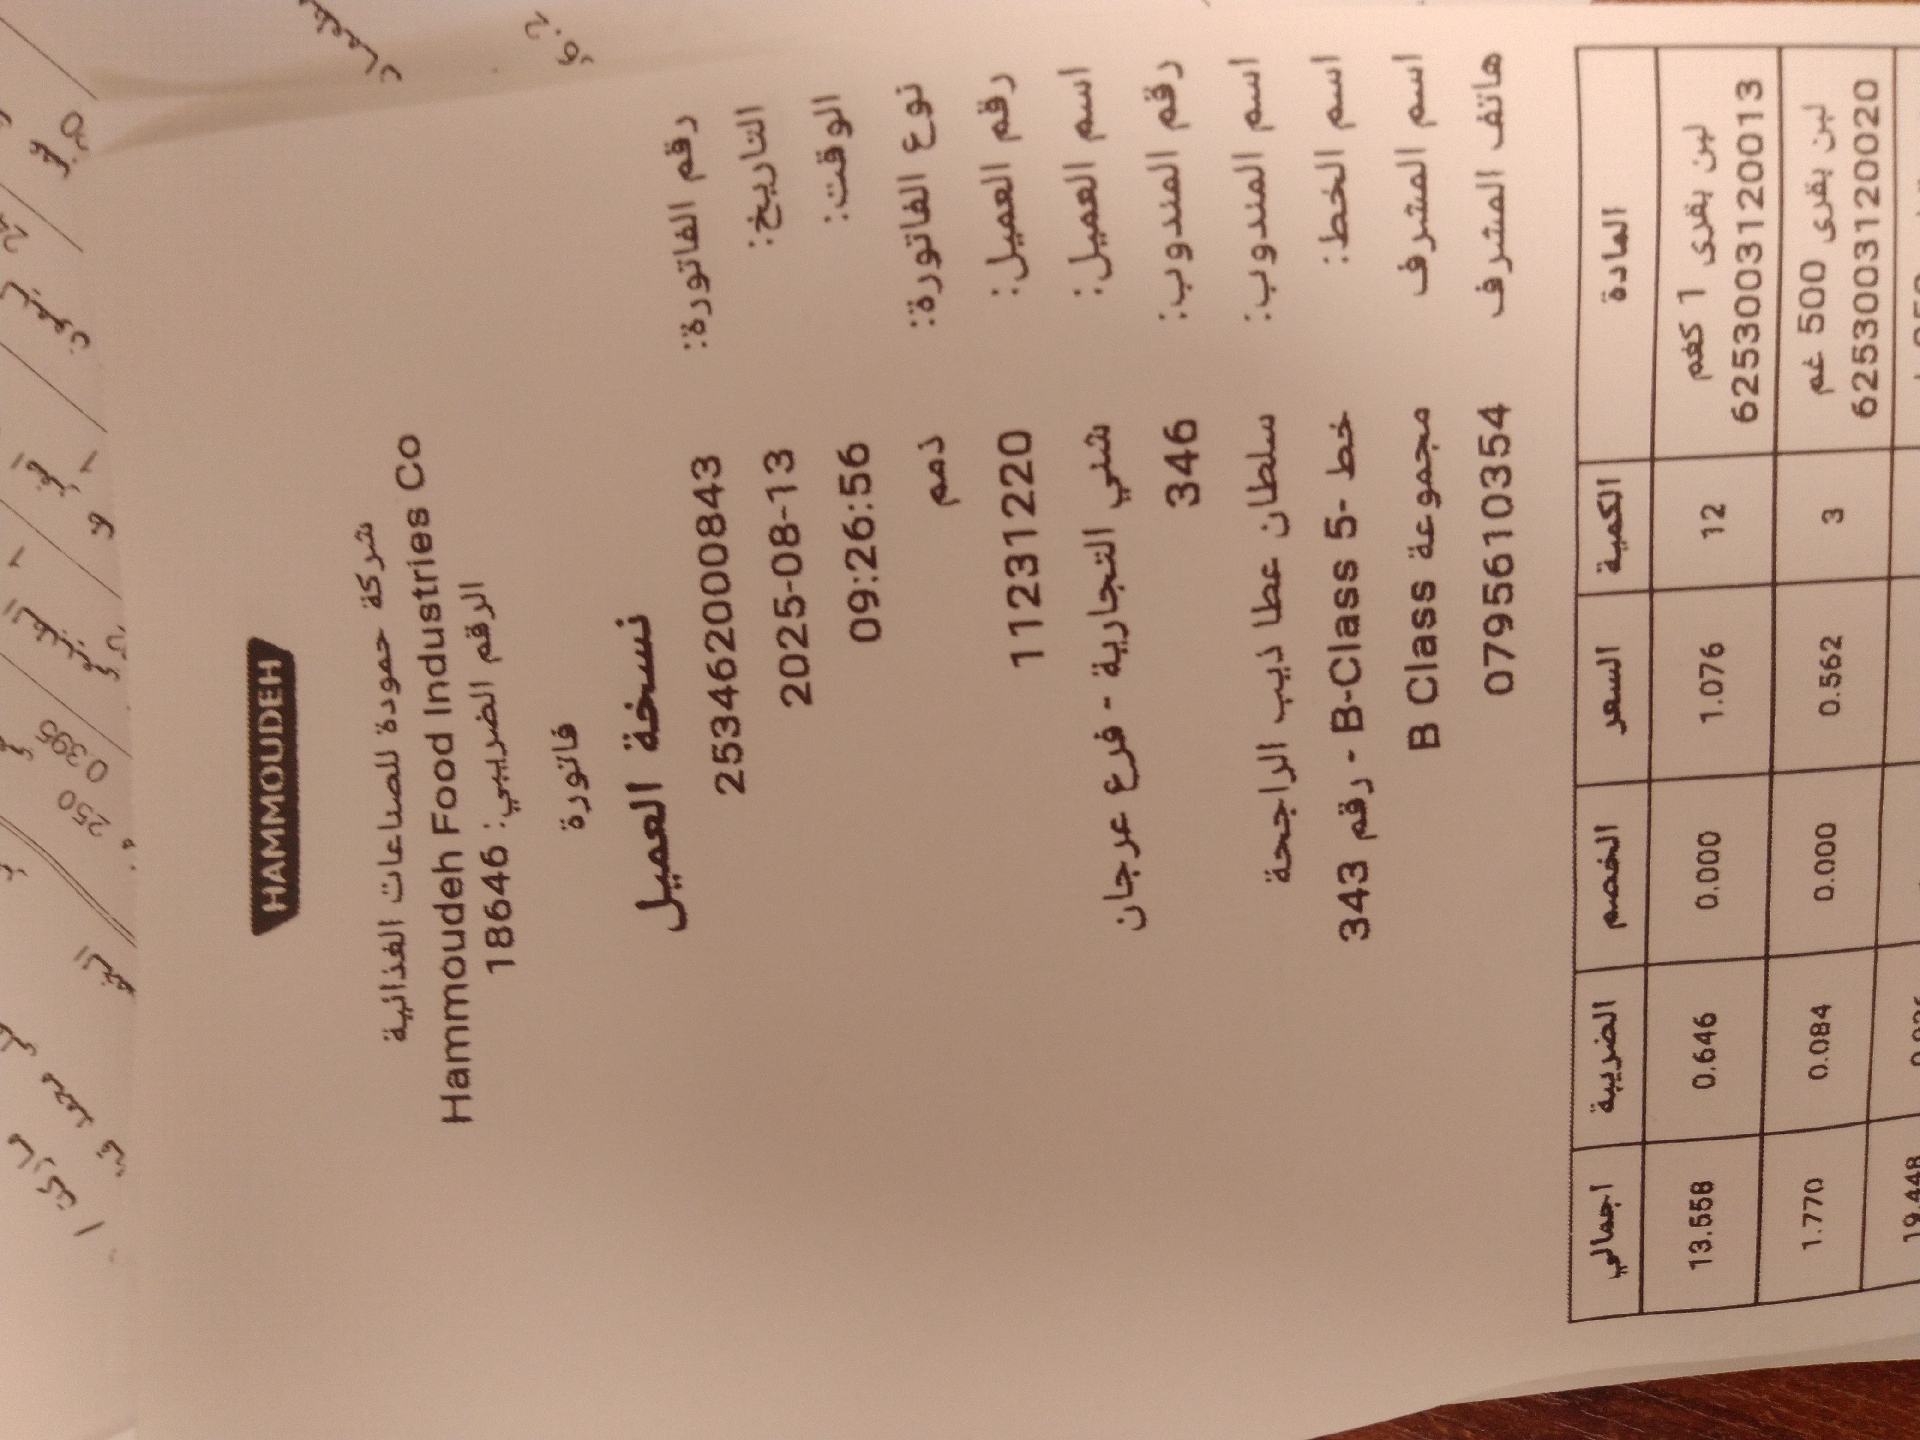 HAMMOUDEH
شركة حمودة للصناعات الغذائية
Hammoudeh Food Industries Co
الرقم الضريبي: 18646
فاتورة
نسخة العميل
رقم الفاتورة: 2534620000843
التاريخ: 2025-08-13
الوقت: 09:26:56
نوع الفاتورة: ذمم
رقم العميل: 11231220
اسم العميل: شلي التجارية - فرع عرجان
رقم المندوب: 346
اسم المندوب: سلطان عطا ذيب الراجحة
اسم الخط: خط -5 B-Class - رقم 343
اسم المشرف مجموعة B Class
هاتف المشرف 0795610354
المادة الكمية السعر الخصم الضريبة اجمالي
لبن بقري 1 كغم 12 1.076 0.000 0.646 13.558
6253003120013
لبن بقري 500 غم 3 0.562 0.000 0.084 1.770
6253003120020
19.448
250 0.395